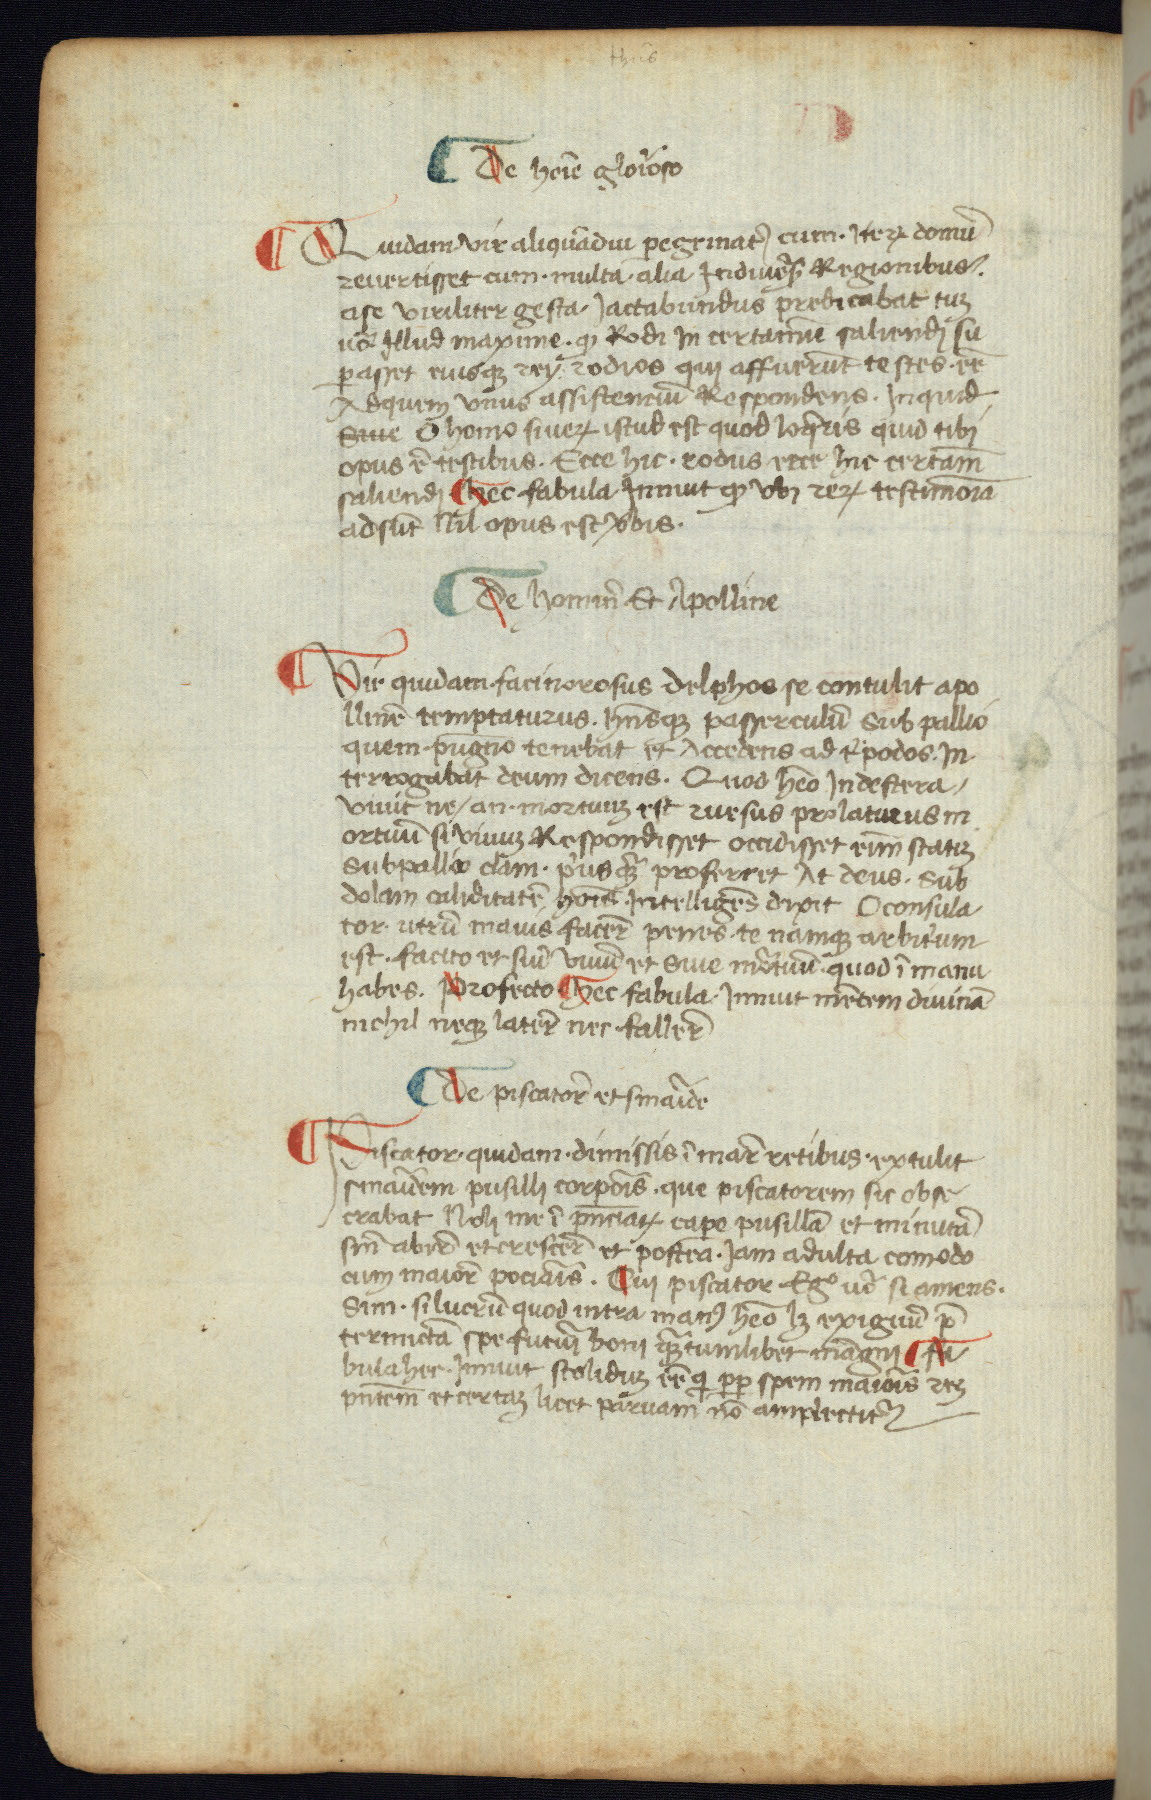 thūs
De hoīe gl'oroso
Quidam vir aliquādiu pegrinat⁹ cum · Iteꝝ domū
revertisset cum · multa · alia In diuēs̄ Regionibus
ase viriliter gesta · Jactabundus predicabat tuꝫ
u̅o Illud maxime · ꝙ Rodi In certamīe saliendi su
passet eiusqꝫ rey rodios qui affuerūt testes · eē
Ad quem vnus assistencium Respondens · Inquid
Siue O homo si ueꝝ istud est quod loq̄ris quid tibi
opus ē testibus · Ecce hic · rodus ecce hic certam̄
saliendi Hec fabula Innuit ꝙ vbi reꝝ testimōia
adsūt Nil opus est v̄bis ·
De homīne Et Apolline
Vir quidam · facinorosus Delphos se contulit apo
llinē temptaturus · hn̄sqꝫ passerculū Sub pallio
quem · pugno tenebat et Accedens ad t'podos · In
terrogabat deum dicens · Quod heo In dextera /
viuit ne / an · mortuum est rursus prolaturus m
ortuū si viuum Respondisset occidisset eum statim
Sub pallio clam · p'usqꝫ proferret At deus · Sub
dolam caliditatē hoīs Intelligēs dixit O consula
tor · utrū mauis facer̄ penes · te namqꝫ arbit'um
est · facito et siue viuū et Siue m̄tuū · quod ī manu
habes · Profecto Hec fabula · Innuit mētem diuinā
nichil neqꝫ later̄ nec · faller̄
De piscator̄ et smaīde
Piscator · quidam · dimissis ī mar̄ retibus · extulit
smaīdem pusilli corp̄ois · que piscatorem sic obse
crabat Noli me ī pn̄ciaꝝ cape pusillā et minutā
sin̄ abir̄ et crescer̄ et posteā · Jam adulta comodo
cum maior̄ pocīāis · Cui piscator · Egᵒ u̅o si amens ·
Sim · si lucrū quod intra man⁹ heo lꝫ exiguū p̄
termictā spe futuri boni qꝫtumlibet magni Fa
bula hec · Innuit stolidum eē q' pp spem maioris rem
pn̄tem et certam licet paruam nō amplectit'